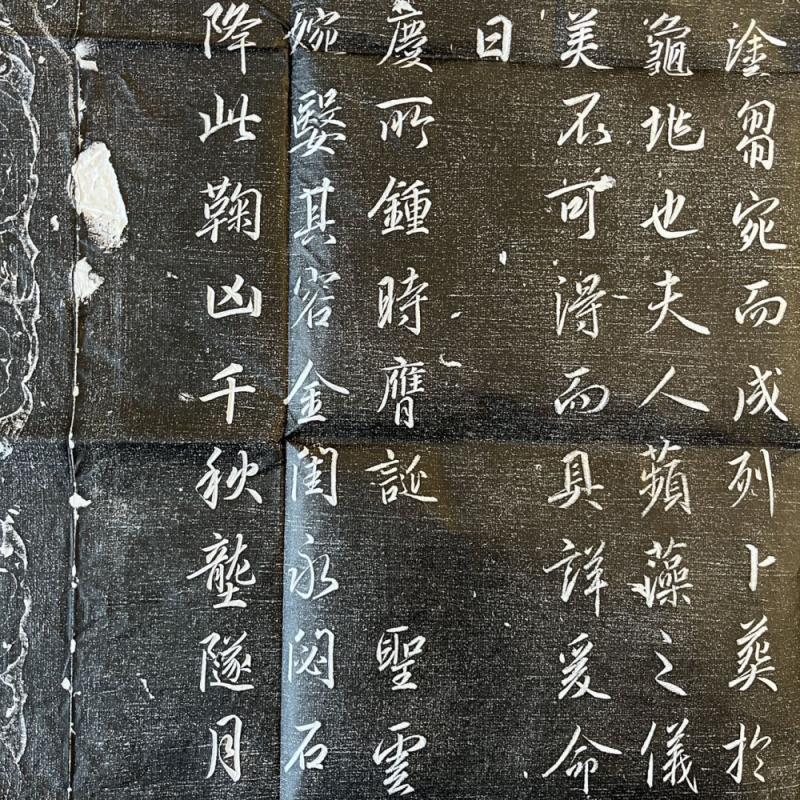 塗芻宛而成列卜葬於
龜垗也夫人蘋藻之儀
美不可得而具詳爰命
曰
慶所鍾時膺誕 聖雲
婉嫛其容金閨永閟石
降此鞠凶千秋壟隧月